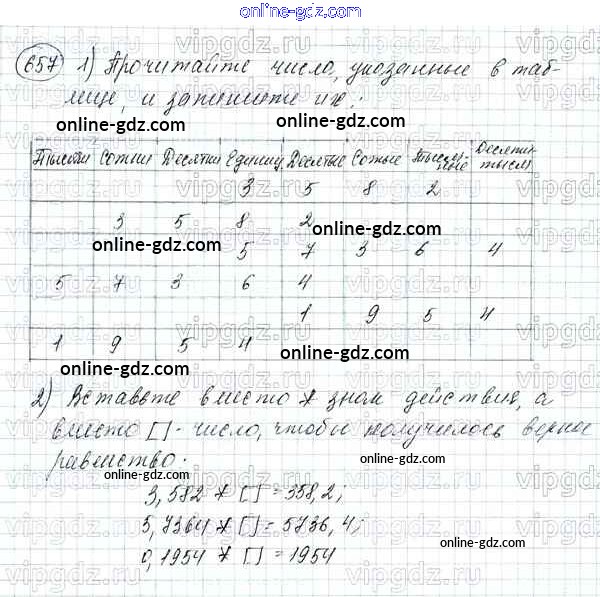 online-gdz.com
657 1) Прочитайте число, указанные в таб-
лице, и запишите их:
online-gdz.com
Тысячи Сотни Десятки Единицы Десятые Сотые Тысяч-ные Десятитысяч
3 5 8 2
3 5 8 2
online-gdz.com
online-gdz.com
5 7 3 6 4
5 7 3 6 4
1 9 5 4
1 9 5 4
online-gdz.com
online-gdz.com
2) Вставьте вместо * знак действия, а
вместо [] - число, чтобы получилось верное
равенство:
online-gdz.com
3,582 * [] = 358,2;
5,7364 * [] = 5736,4;
0,1954 * [] = 1954
online-gdz.com
vipgdz.ru